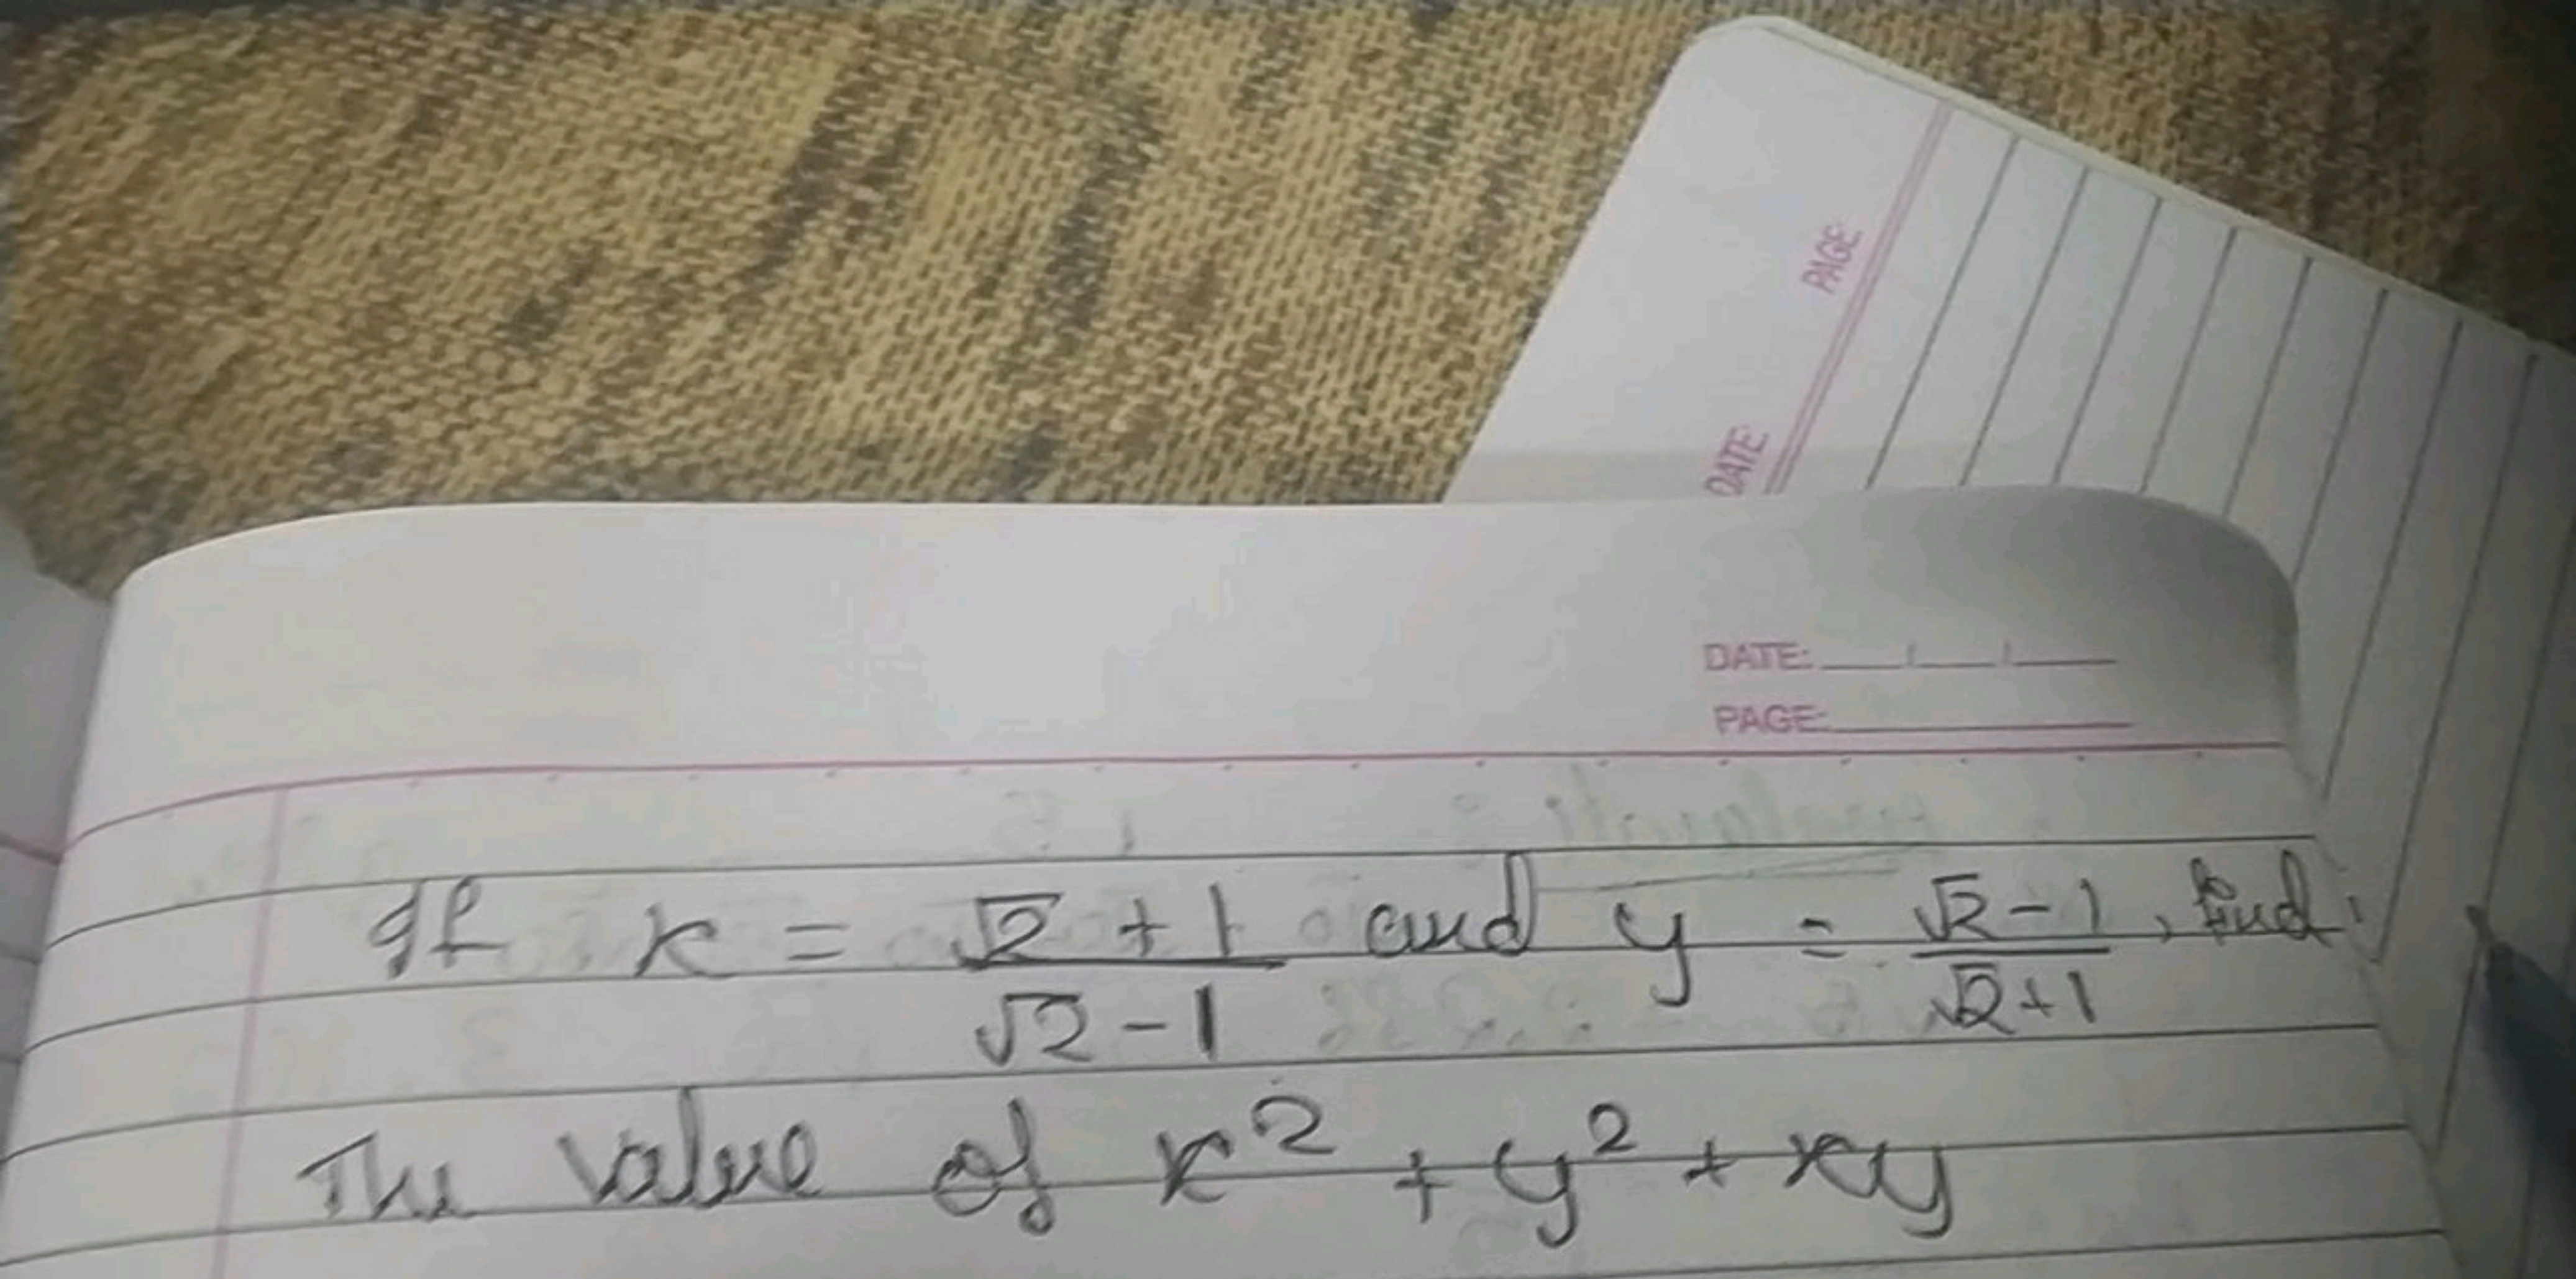 PAGE:
DATE:
DATE:
PAGE:
If x = √2 + 1 / √2 - 1 and y = √2 - 1 / √2 + 1, find
The value of x² + y² + xy